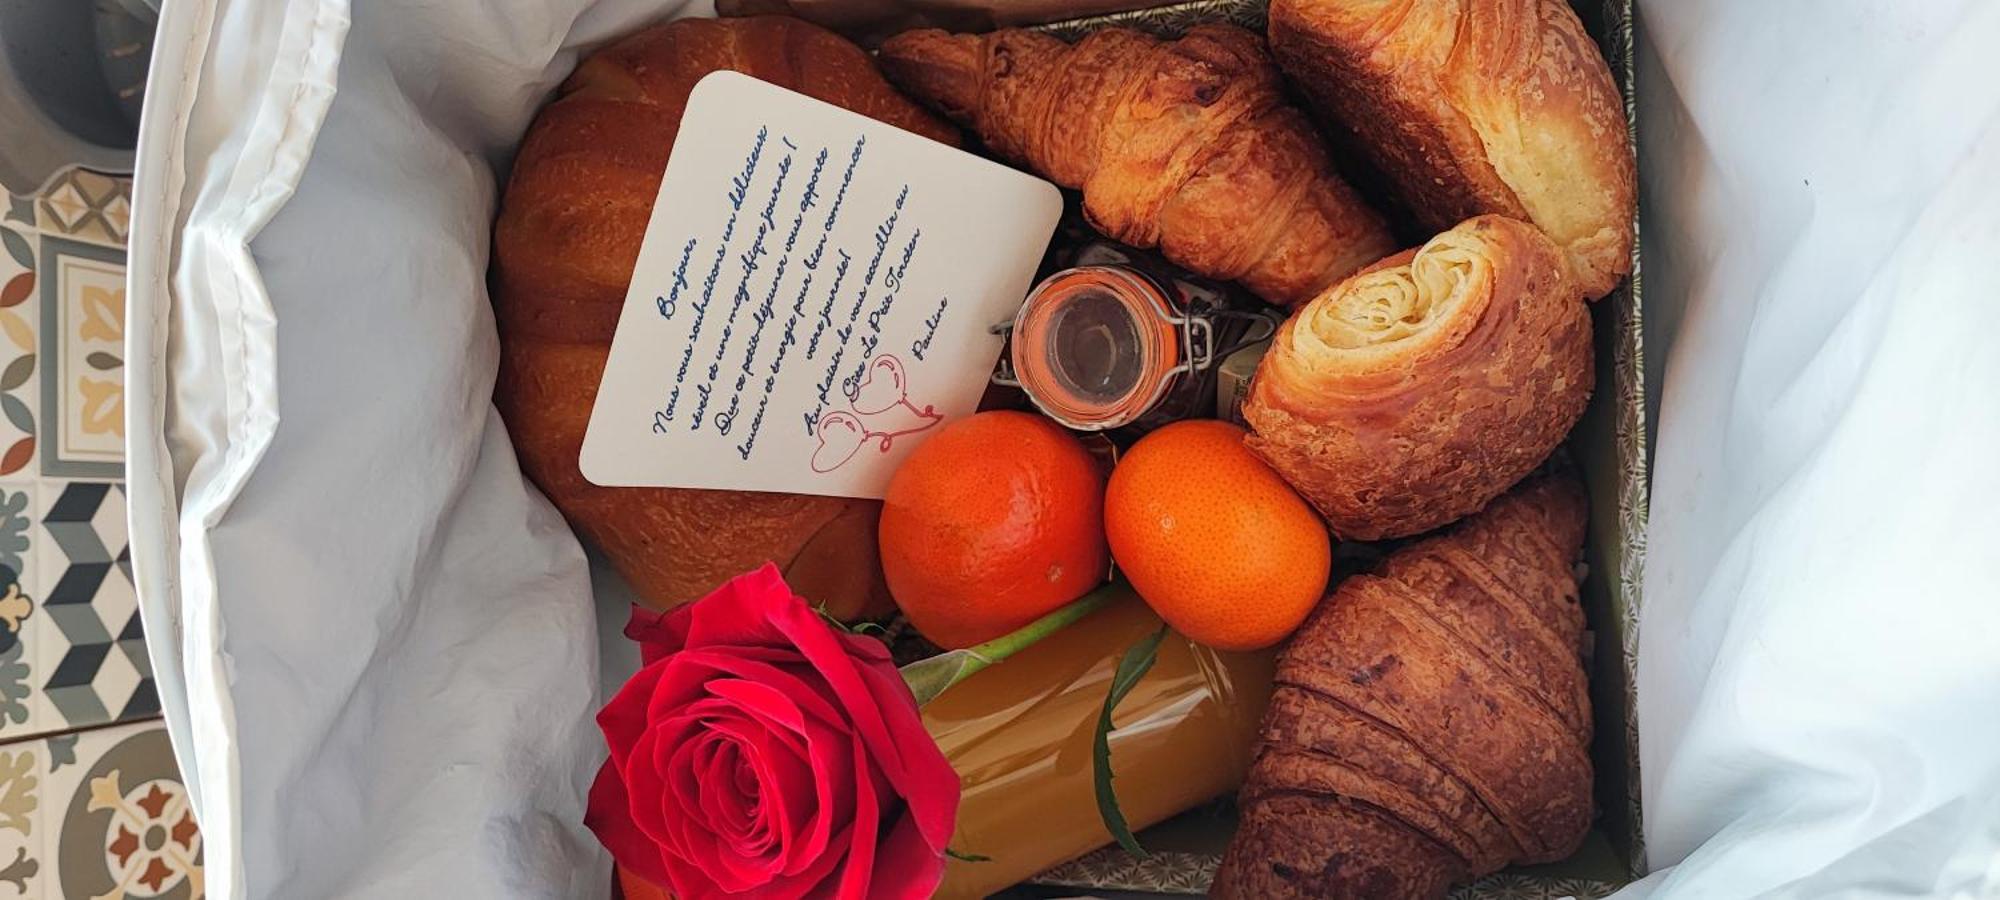 Bonjour,
Nous vous souhaitons un délicieux
réveil et une magnifique journée !
Que ce petit-déjeuner vous apporte
douceur et énergie pour bien commencer
votre journée!
Au plaisir de vous accueillir au
Gîte Le P'tit Torden
Pauline